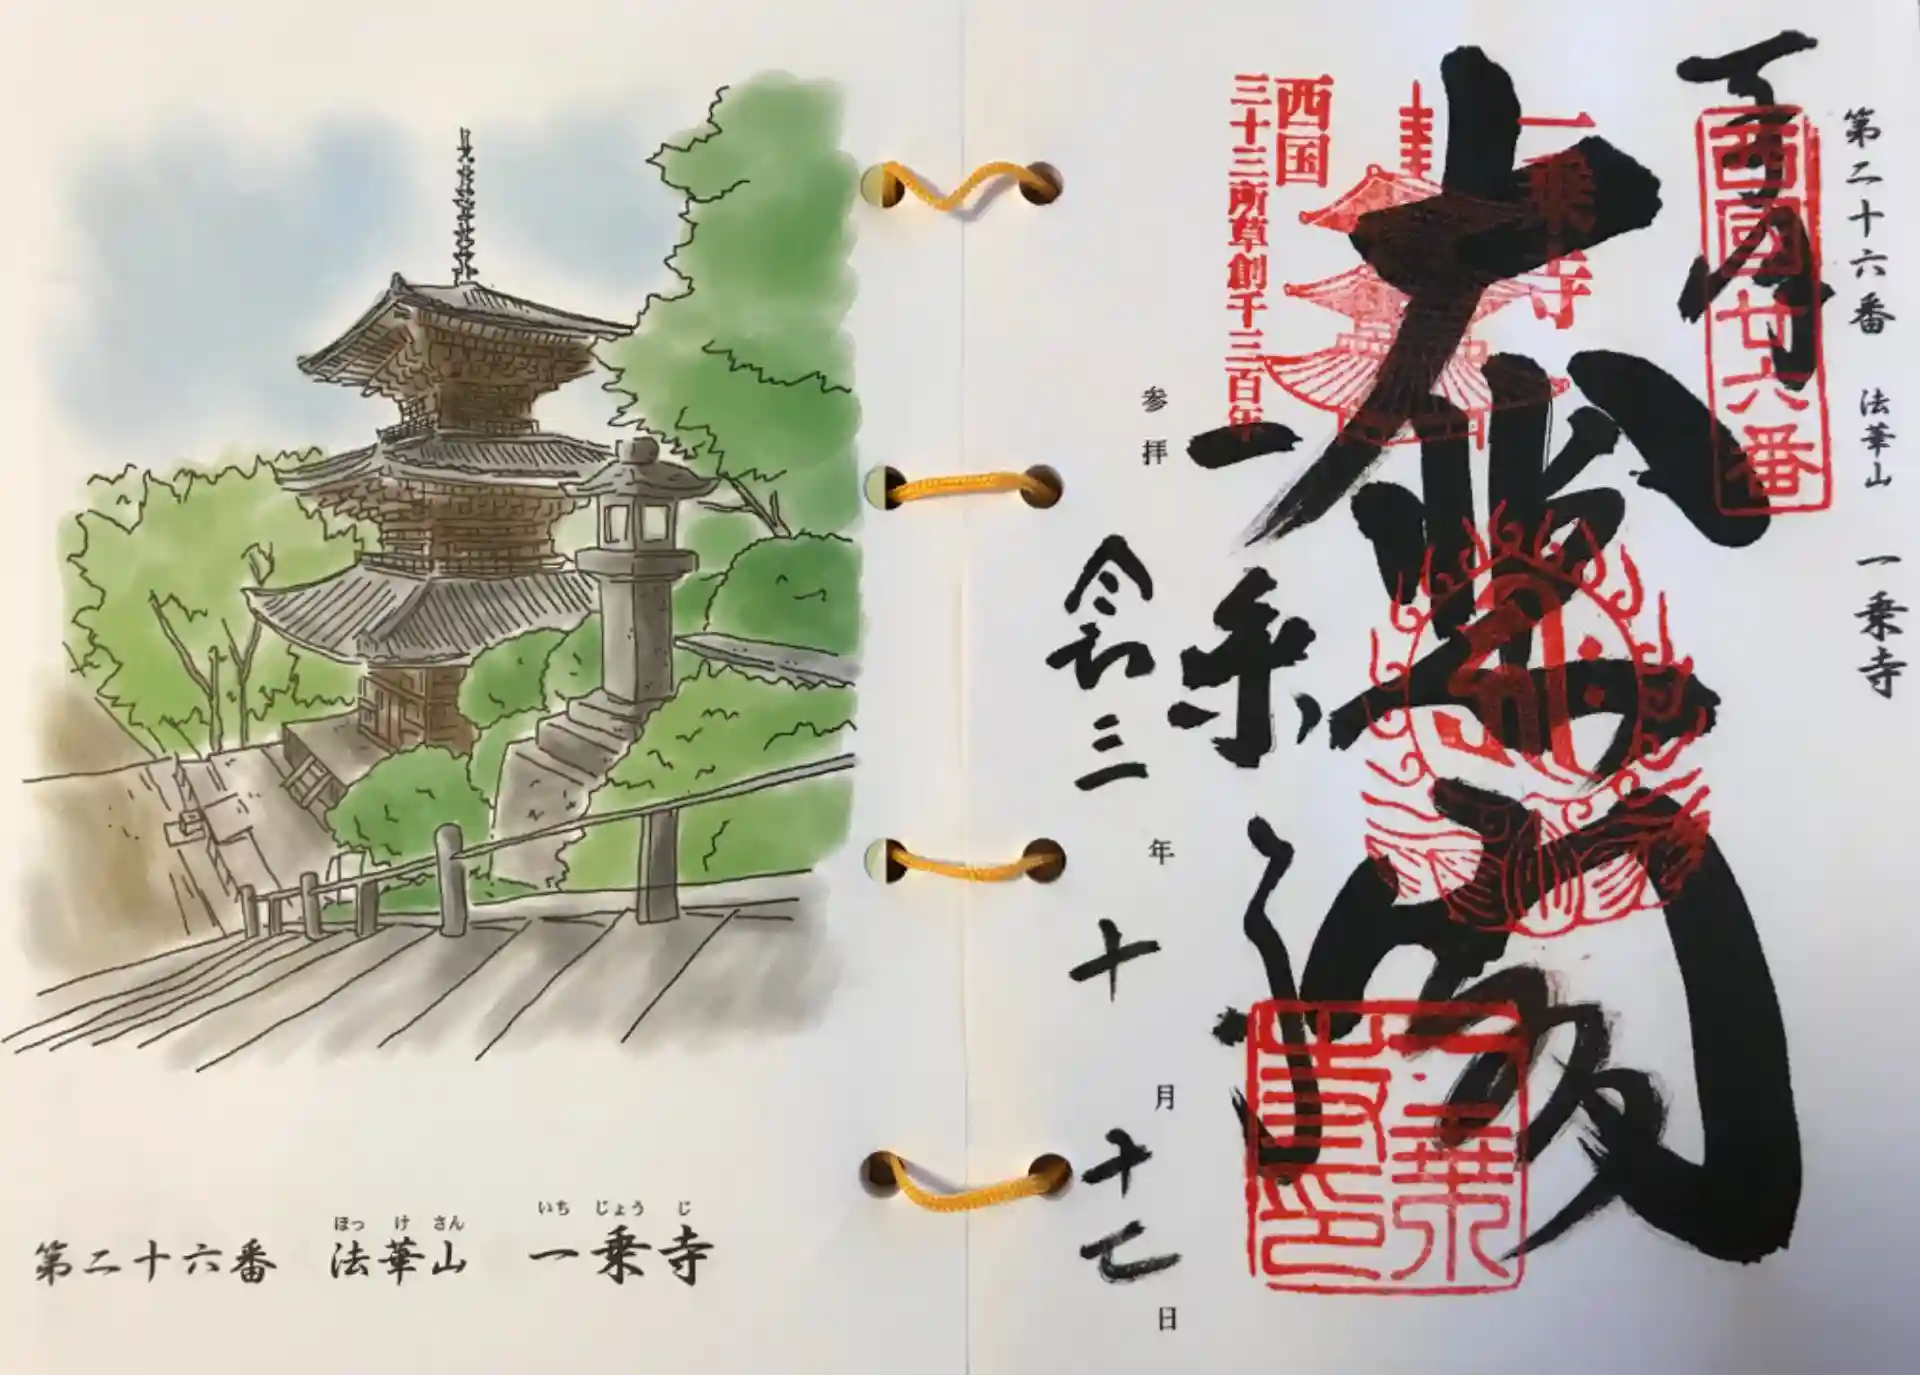 いち じょう じ
ほっ け さん
第二十六番 法華山 一乗寺
第二十六番 法華山 一乗寺
西國廿六番
一乗寺
大悲閣
西国
三十三所草創千三百年
一乗寺
一乗寺印
参拝 令和三年十月十七日